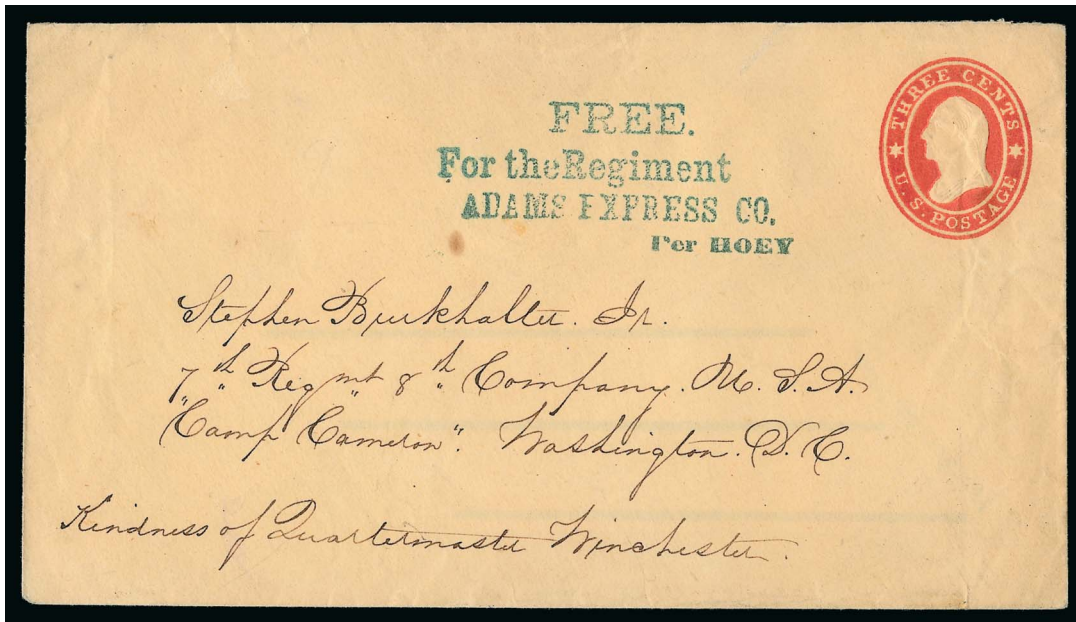 THREE CENTS
U. S. POSTAGE
FREE.
For the Regiment
ADAMS EXPRESS CO.
Per HOEY
Stephen Burkhalter. Jr.
7th Regmt 8th Company. N. S. A.
"Camp Cameron". Washington. D. C.
Kindness of Quartermaster Winchester.